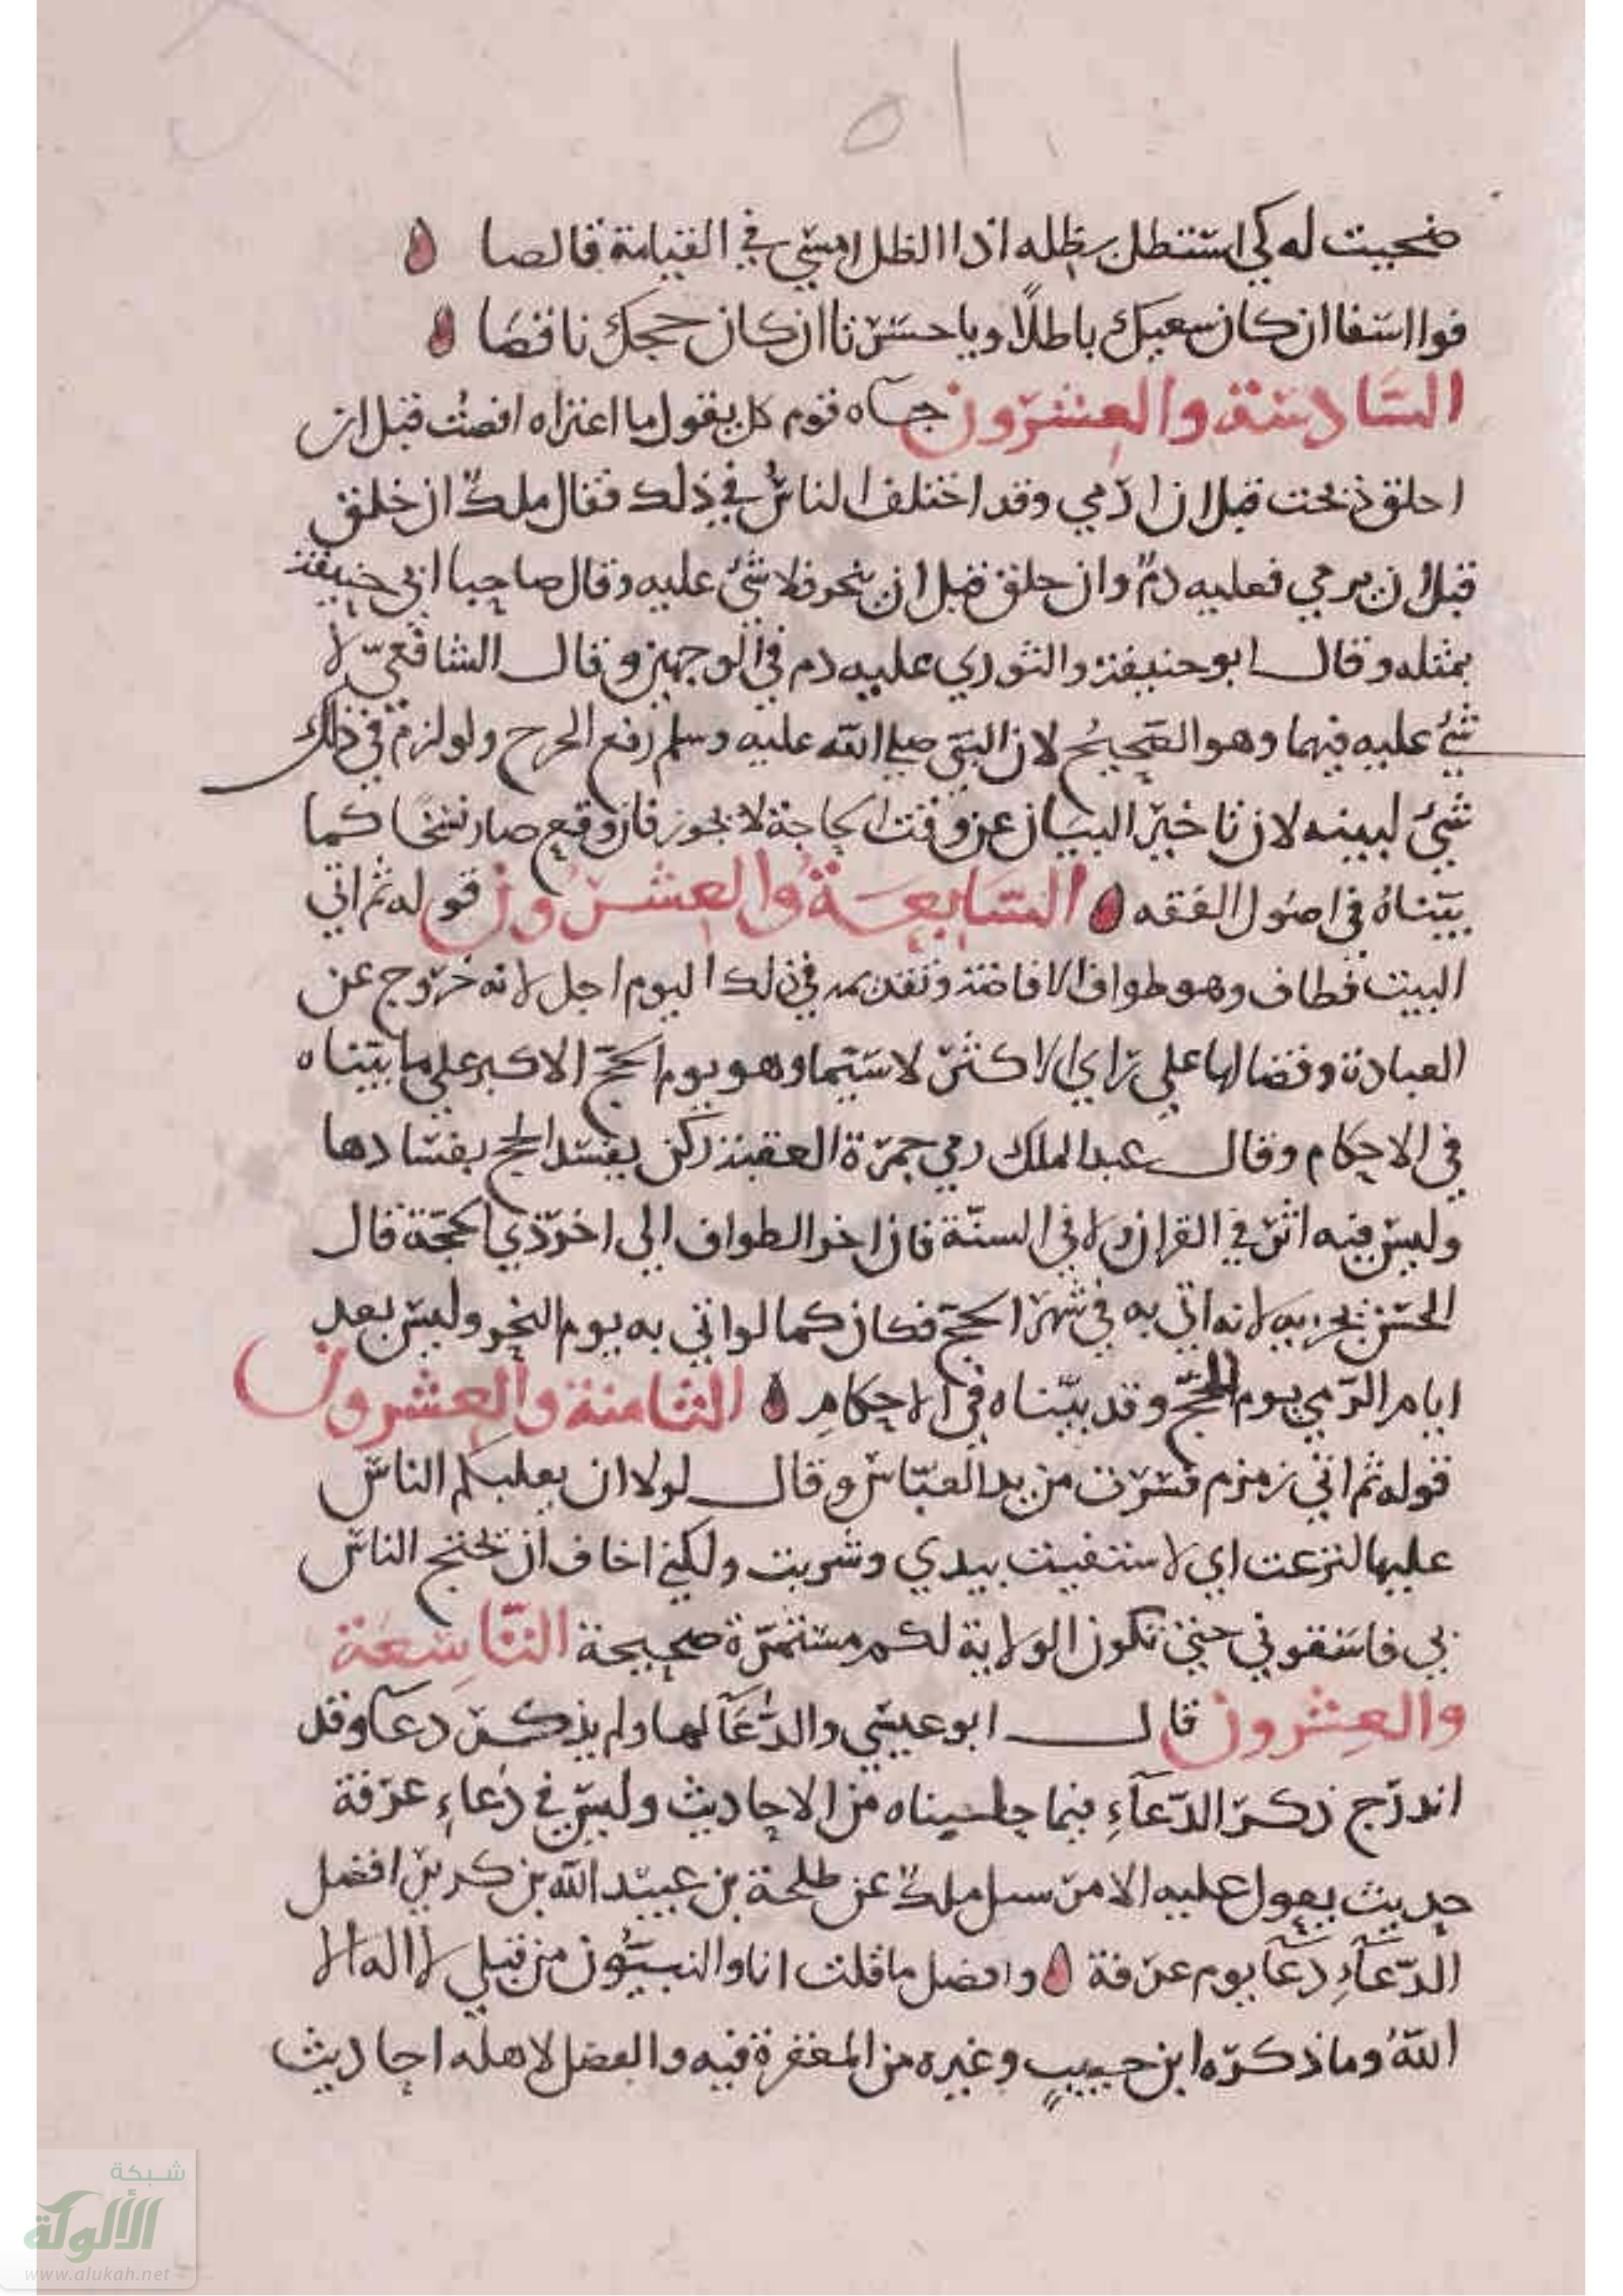 ضحيت له كي استظل بظله اذا الظل امسى في القيامة قالصا
فوا اسفا ان كان سعيك باطلًا ويا حسرتا ان كان حجك ناقصا
السّادسة والعشرون جاه قوم كل يقول ما اعتراه افضت قبل ان
احلق ذبحت قبل ان ارمي وقد اختلف الناس في ذلك فقال ملك ان حلق
قبل ان يرمي فعليه دم وان حلق قبل ان ينحر فلا شئ عليه وقال صاحبا ابي حنيفة
بمثله وقال ابو حنيفة والثوري عليه دم في الوجهين وقال الشافعيّ لا
شئ عليه فيهما وهو الصّحيح لان النبيّ صلى الله عليه وسلم رفع الحرج ولو لزم في ذلك
شئ لبينه لان تاخير البيان عن وقت الحاجة لا يجوز فان وقع صار نسخا كما
بيّناه في اصول الفقه السّابعة والعشرون قوله ثم اتى
البيت فطاف وهو طواف الافاضة وتقديمه في ذلك اليوم اجل لانه خروج عن
العبادة وقضا لها على راي الاكثر لا سيّما وهو يوم الحجّ الاكبر على ما بيّناه
في الاحكام وقال عبد الملك رمي جمرة العقبة ركن يفسد الحج بفسادها
وليس فيه اثر في القران ولا في السنّة فان اخر الطواف الى اخر ذي الحجّة قال
الحسن يجزيه لانه اتى به في شهر الحجّ فكان كما لو اتى به يوم النحر وليس بعد
ايام الرّمي يوم للحجّ وقد بيّناه في الاحكام الثامنة والعشرون
قوله ثم اتى زمزم فشرب من يد العبّاس وقال لولا ان يغلبكم الناس
عليها لنزعت اي لاستقيت بيدي وشربت ولكني اخاف ان يحتج الناس
بي فاسقوني حتى تكون الولاية لكم مستمرّة صحيحة التّاسعة
والعشرون قال ابو عيسى والدّعآ لها ولم يذكر دعآ وقد
اندرج ذكر الدّعآءِ فيما من الاحاديث وليس في دعاءِ عرفة
حديث يعول عليه الا مرسل ملك عن طلحة بن عبيد الله بن كريز افضل
الدّعآءِ دعآ يوم عرفة وافضل ما قلت انا والنبيّون من قبلي لا اله الا
اللهُ وما ذكره ابن حبيبٍ وغيره من المغفرة فيه والفضل لاهله احاديث
شبكة
الألوكة
www.alukah.net